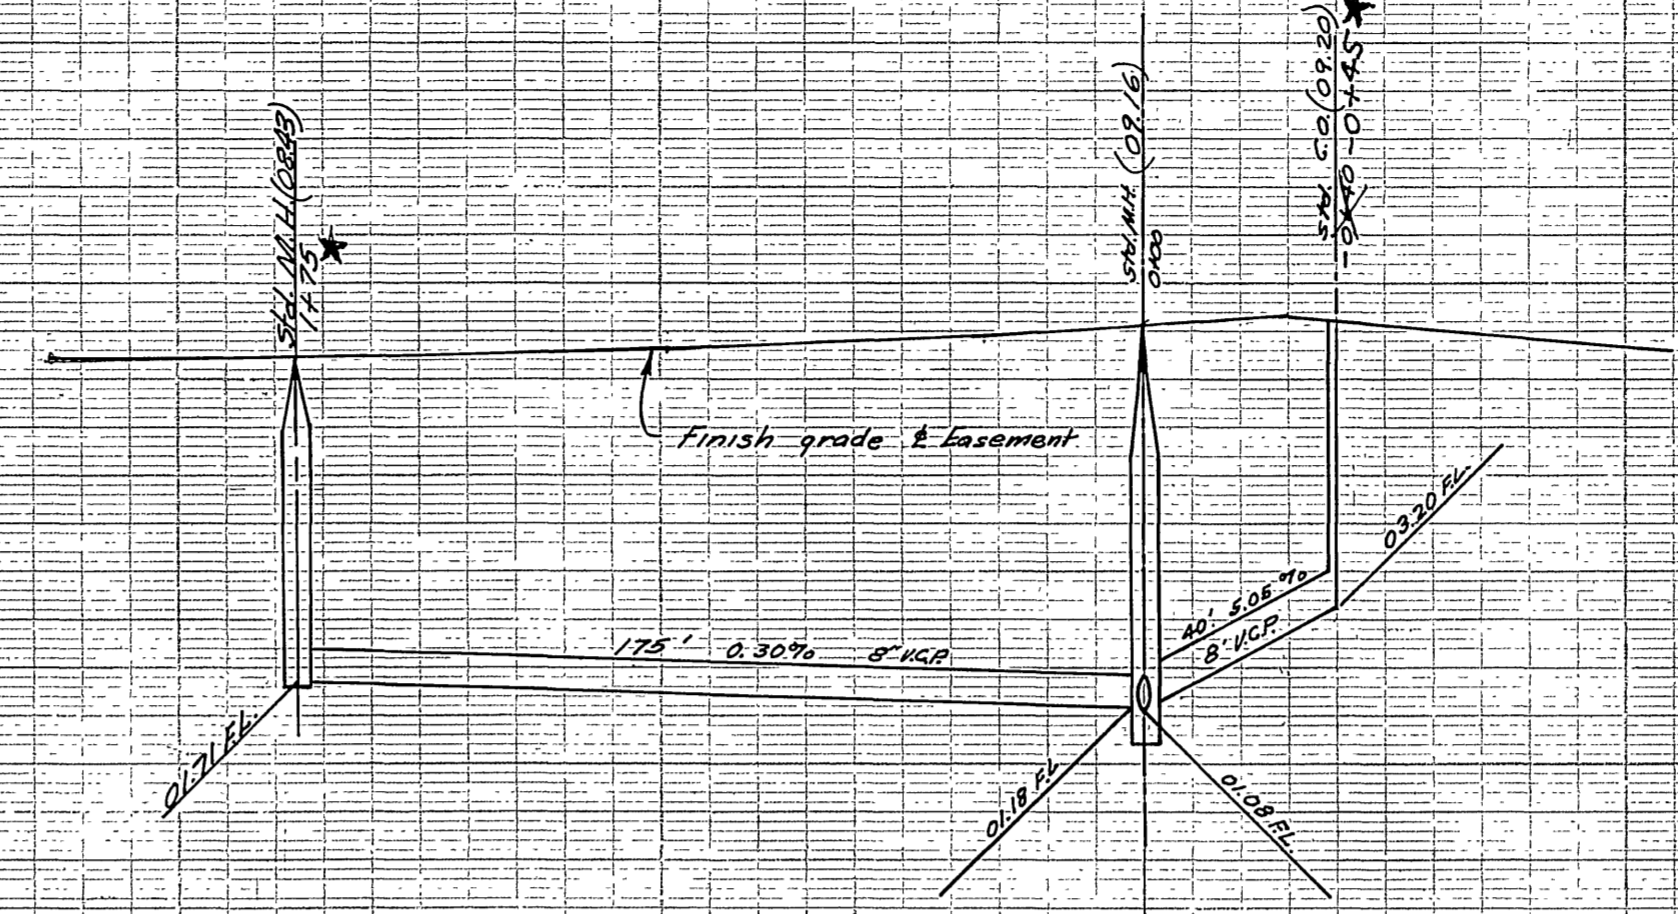 Std. M.H. (08.43)
1+75
Std. M.H. (09.16)
0+00
Std. C.O. (09.20)
-0+40 -0+45
Finish grade ℄ Easement
175' 0.30% 8" V.C.P.
40' 5.05%
8" V.C.P.
03.20 F.L.
01.71 F.L.
01.18 F.L.
01.08 F.L.